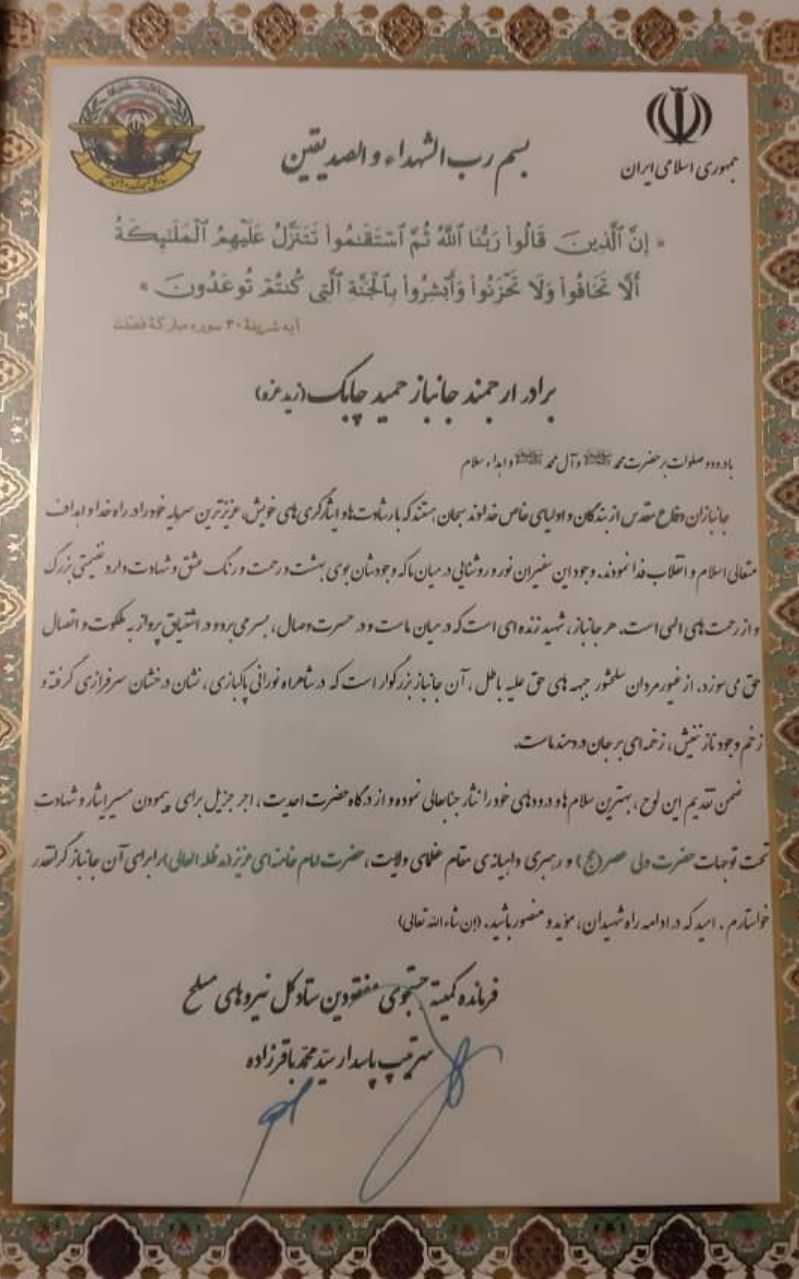 جمهوری اسلامی ایران
بسم رب الشهداء و الصدیقین
« إِنَّ ٱلَّذِينَ قَالُوا۟ رَبُّنَا ٱللَّهُ ثُمَّ ٱسْتَقَـٰمُوا۟ تَتَنَزَّلُ عَلَيْهِمُ ٱلْمَلَـٰٓئِكَةُ
أَلَّا تَخَافُوا۟ وَلَا تَحْزَنُوا۟ وَأَبْشِرُوا۟ بِٱلْجَنَّةِ ٱلَّتِى كُنتُمْ تُوعَدُونَ »
آیه شریفۀ ۳۰ سوره مبارکۀ فصلت
برادر ارجمند جانباز حمید چابک (زید عزه)
با درود و صلوات بر حضرت محمد ﷺ و آل محمد ﷺ و اهداء سلام
جانبازان دفاع مقدس از بندگان و اولیای خاص خداوند سبحان هستند که با رشادت‌ها و ایثارگری‌های خویش، عزیزترین سرمایه خود را در راه خدا و اهداف
متعالی اسلام و انقلاب فدا نمودند. وجود این سفیران نور و روشنایی در میان ما که وجودشان بوی بهشت و رحمت و رنگ عشق و شهادت دارد غنیمتی بزرگ
و از رحمت های الهی است. هر جانباز، شهید زنده ای است که در میان ماست و در حسرت وصال، بسر می برد و در اشتیاق پرواز به ملکوت و اتصال
حق می سوزد. از غیور مردان سلحشور جبهه های حق علیه باطل، آن جانباز بزرگوار است که در شاهراه نورانی پاکبازی، نشان درخشان سرفرازی گرفته و
زخم وجود نازنینش، زخمه ای بر جان دردمند ماست.
ضمن تقدیم این لوح، بهترین سلام ها و درودهای خود را نثار جنابعالی نموده و از درگاه حضرت احدیت، اجر جزیل برای پیمودن مسیر ایثار و شهادت
تحت توجهات حضرت ولی عصر (عج) و رهبری داهیانه ی مقام عظمای ولایت، حضرت امام خامنه ای عزیز (مد ظله العالی) را برای آن جانباز گرانقدر
خواستارم. امید که در ادامه راه شهیدان، مؤید و منصور باشید. (إن شاء الله تعالی)
فرمانده کمیته جستجوی مفقودین ستاد کل نیروهای مسلح
سرتیپ پاسدار سیّد محمّد باقرزاده